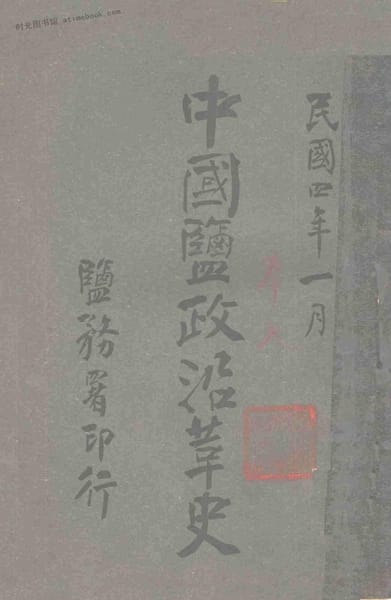 时光图书馆 atimebook.com
民國四年一月
中國鹽政沿革史
鹽務署印行